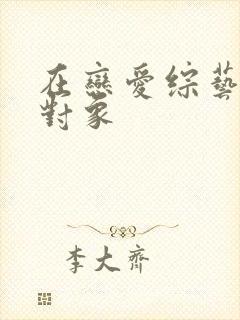 在戀愛綜藝
對象
李大齊